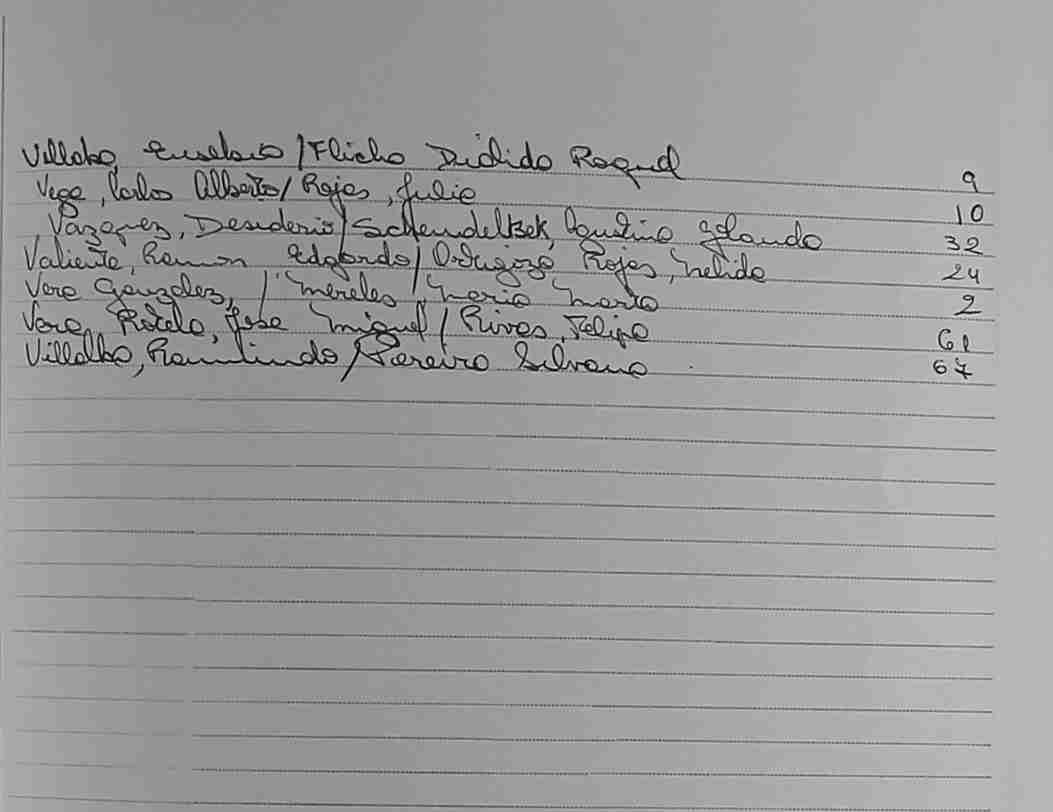 Villalba, Eusebio / Flicho Roquel 9
Vega, Carlos Alberto / Rojas, Julio 10
Vazquez, Desiderio / Faustino Yolando 32
Valiente, Ramon Edgardo / Rojas, Nelida 24
Vera Gonzalez, / Mereles, Maria Marta 2
Vera, Rotela, Jose Miguel / Rivas, Felipe 61
Villalba, / Pereiro Silvano 67